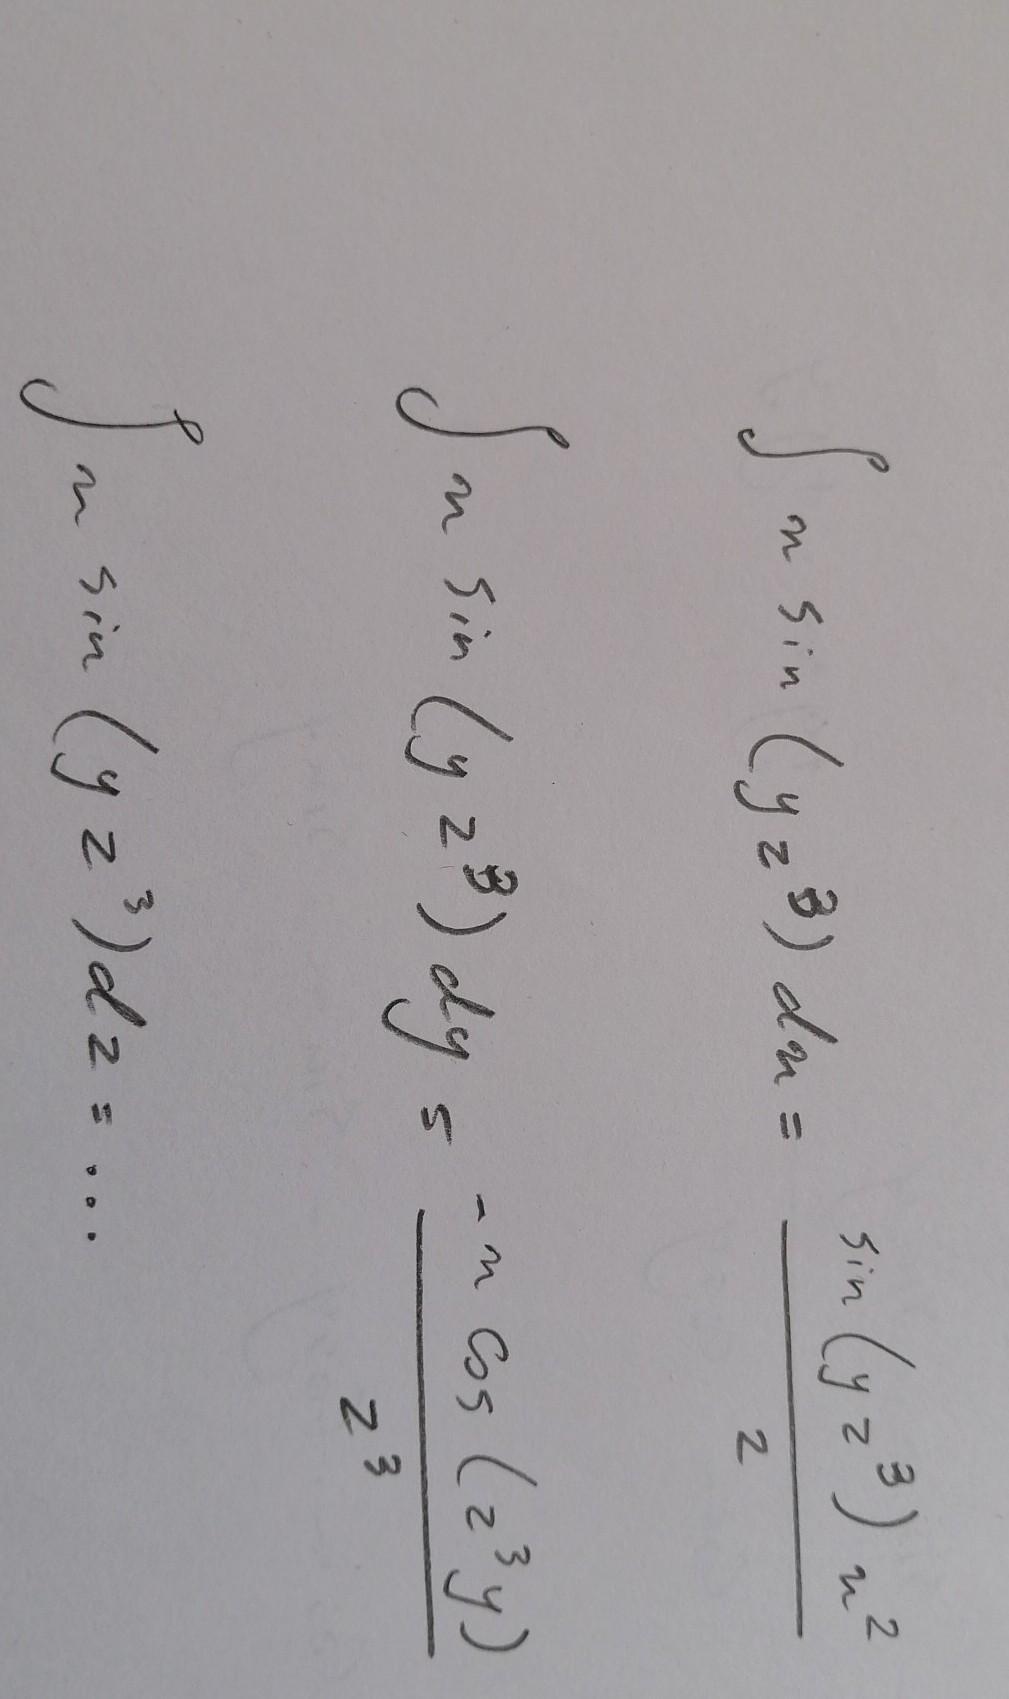 ∫ x sin(yz³)dx = sin(yz³)x² / 2
∫ x sin(yz³)dy = -x cos(z³y) / z³
∫ x sin(yz³)dz = ...